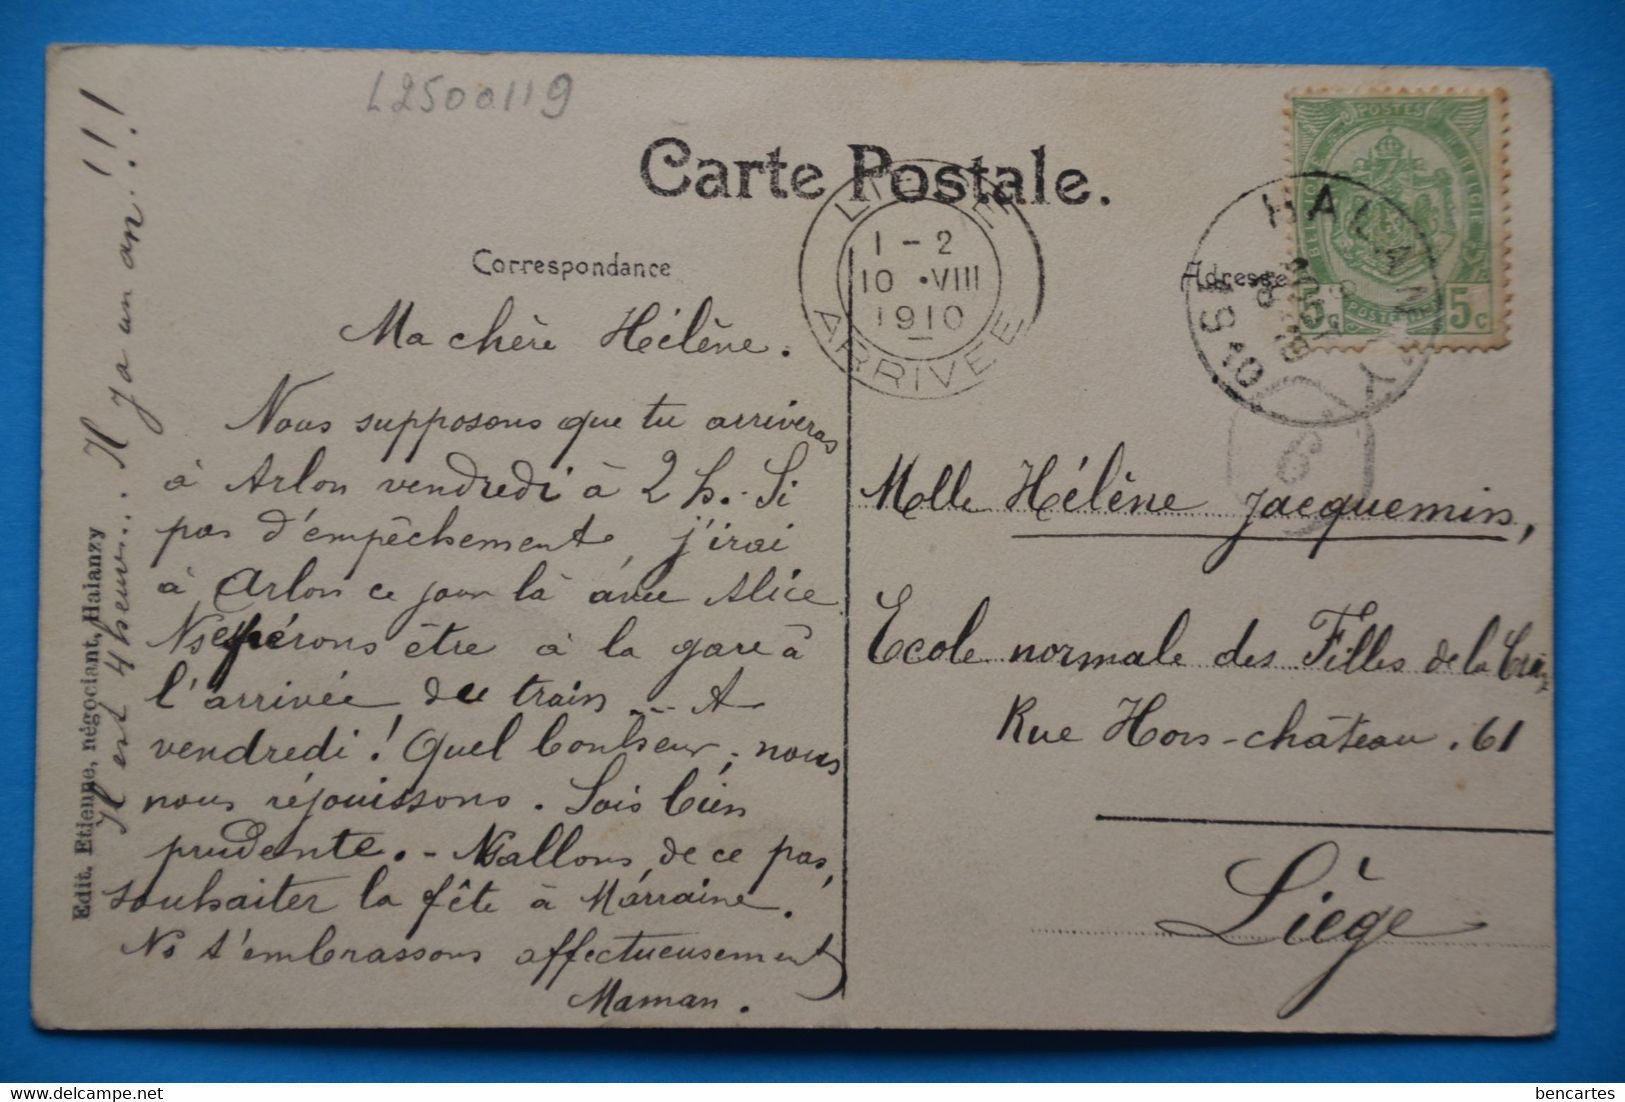 L2500119
Carte Postale.
Correspondance
Adresse
LIEGE
1-2
10 • VIII
1910
ARRIVEE
HALANZY
1910
POSTES
BELGIQUE
5c 5c
6
Ma chère Hélène.
Nous supposons que tu arriveras
à Arlon vendredi à 2 h. - Si
pas d'empêchement, j'irai
à Arlon ce jour là avec Alice
Ns espérons être à la gare à
l'arrivée du train .... A
vendredi ! Quel bonheur, nous
nous réjouissons. Sois bien
prudente. - Ns allons, de ce pas,
souhaiter la fête à Marraine.
Ns t'embrassons affectueusement
Maman.
Il est 4 heures.. Il y a un an !!!
Edit. Etienne, négociant, Halanzy
Melle Hélène Jacquemin,
Ecole normale des Filles de la Croix
Rue Hors-château. 61
Liège
delcampe.net
bencartes